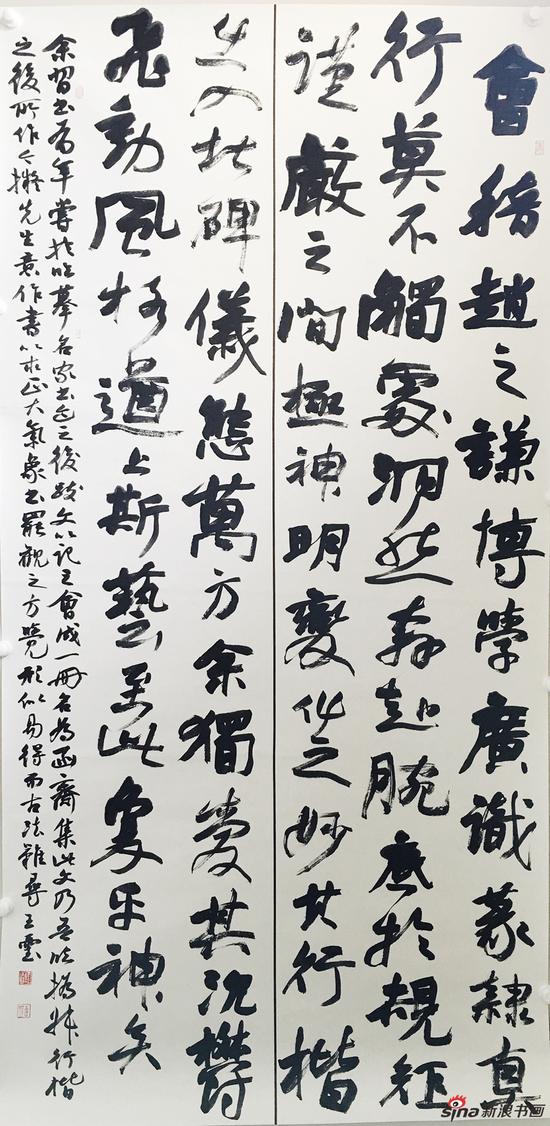 會稽趙之謙博學廣識篆隸真
行莫不觸處然奔赴腕底於規矩
謹嚴之間極神明變化之妙其行楷
出入北碑儀態萬方余獨愛其沉鬱
飛動風格遒上斯藝至此乎神矣
余習書有年嘗於臨摹名家書迹之後跋文以記之會成一冊名為函齋集此文乃吾臨撝叔行楷
之後所作今擬先生意作書以求正大氣象書罷觀之方覺形似易得而古法難尋王雲
sina新浪书画